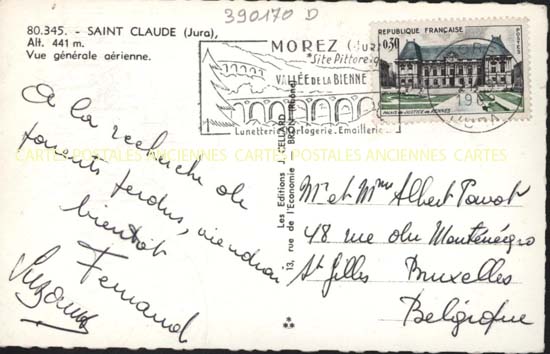 390170 D
80.345. - SAINT CLAUDE (Jura),
Alt. 441 m.
Vue générale aérienne.
MOREZ (Jura)
*Site Pittoresq
VALLÉE DE LA BIENNE
Lunetterie. Horlogerie. Emaillerie
REPUBLIQUE FRANÇAISE
0,30
PALAIS DE JUSTICE DE RENNES
CARTES POSTALES ANCIENNES CARTES POSTALES ANCIENNES CARTES
A la recherche de
parents perdus, viendrai
bientôt
Fernand
Suzanne
Les Editions J. CELLARD
13, rue de l'Economie BRON (Rhône)
Mr et Mme Albert Pavot
48 rue du Monténégro
St Gilles Bruxelles
Belgique